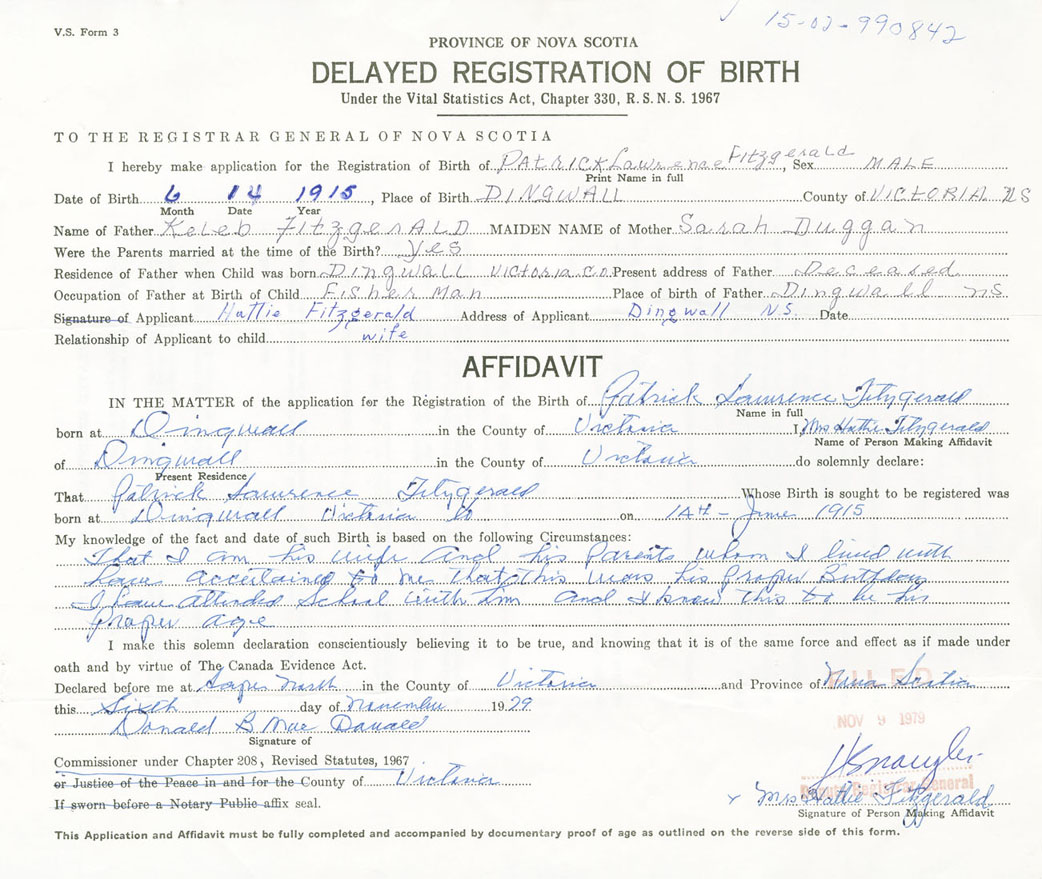 V.S. Form 3
15-02-990842
PROVINCE OF NOVA SCOTIA
DELAYED REGISTRATION OF BIRTH
Under the Vital Statistics Act, Chapter 330, R.S.N.S. 1967
TO THE REGISTRAR GENERAL OF NOVA SCOTIA
I hereby make application for the Registration of Birth of PATRICK Lawrence Fitzgerald, Sex MALE
Print Name in full
Date of Birth 6 14 1915, Place of Birth DINGWALL County of VICTORIA NS
Month Date Year
Name of Father Keleb FitzgerALD MAIDEN NAME of Mother Sarah Duggan
Were the Parents married at the time of the Birth? yes
Residence of Father when Child was born Dingwall Victoria Co. Present address of Father Deceased
Occupation of Father at Birth of Child Fisher Man Place of birth of Father Dingwall NS
Signature of Applicant Hattie Fitzgerald Address of Applicant Dingwall NS. Date
Relationship of Applicant to child wife
AFFIDAVIT
IN THE MATTER of the application for the Registration of the Birth of Patrick Lawrence Fitzgerald
Name in full
born at Dingwall in the County of Victoria I, Mrs Hattie Fitzgerald
Name of Person Making Affidavit
of Dingwall in the County of Victoria do solemnly declare:
Present Residence
That Patrick Lawrence Fitzgerald Whose Birth is sought to be registered was
born at Dingwall Victoria Co on 14th June 1915
My knowledge of the fact and date of such Birth is based on the following Circumstances:
That I am his wife And his Parents whom I lived with
have accertained to me that this was his proper Birthday
I have attended School with him And I know this to be his
proper age
I make this solemn declaration conscientiously believing it to be true, and knowing that it is of the same force and effect as if made under
oath and by virtue of The Canada Evidence Act.
Declared before me at Cape North in the County of Victoria and Province of Nova Scotia
this Sixth day of November 1979
FILED
NOV 9 1979
Donald B Mac Donald
Signature of
Commissioner under Chapter 208, Revised Statutes, 1967
or Justice of the Peace in and for the County of Victoria
Deputy Registrar General
If sworn before a Notary Public affix seal.
x Mrs Hattie Fitzgerald
Signature of Person Making Affidavit
This Application and Affidavit must be fully completed and accompanied by documentary proof of age as outlined on the reverse side of this form.